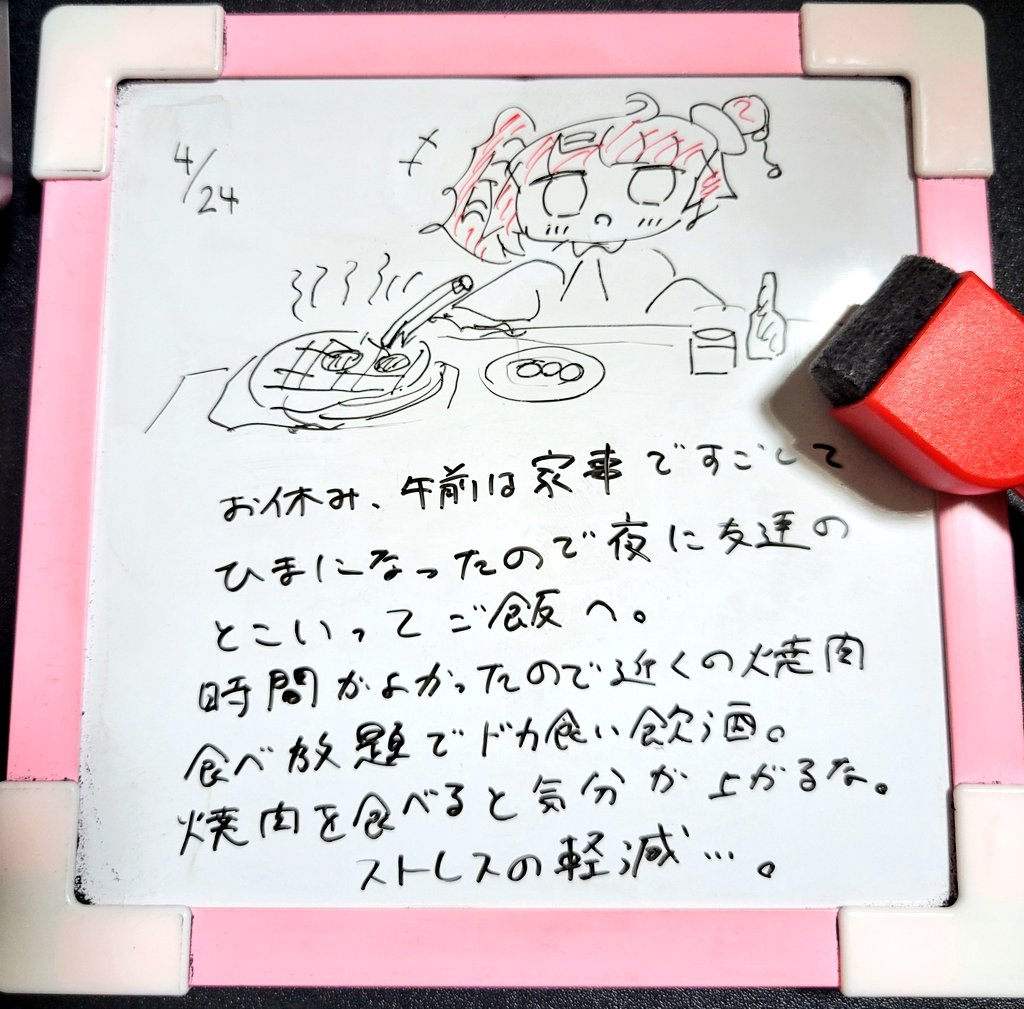 4/24
お休み、午前は家事ですごして
ひまになったので夜に友達の
とこいってご飯へ。
時間がよかったので近くの焼肉
食べ放題でドカ食い飲酒。
焼肉を食べると気分が上がるな。
ストレスの軽減…。